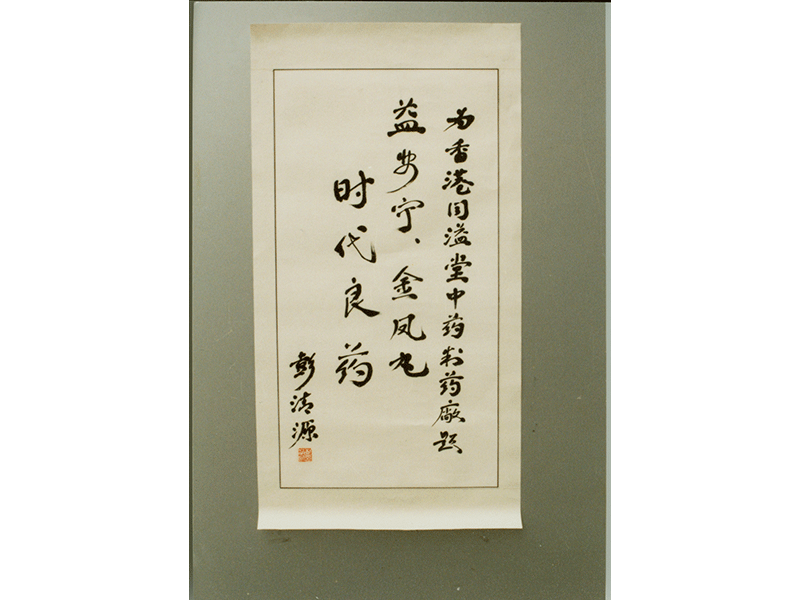 为香港同溢堂中药制药厰题
益安宁、金凤丸
时代良药
彭清源